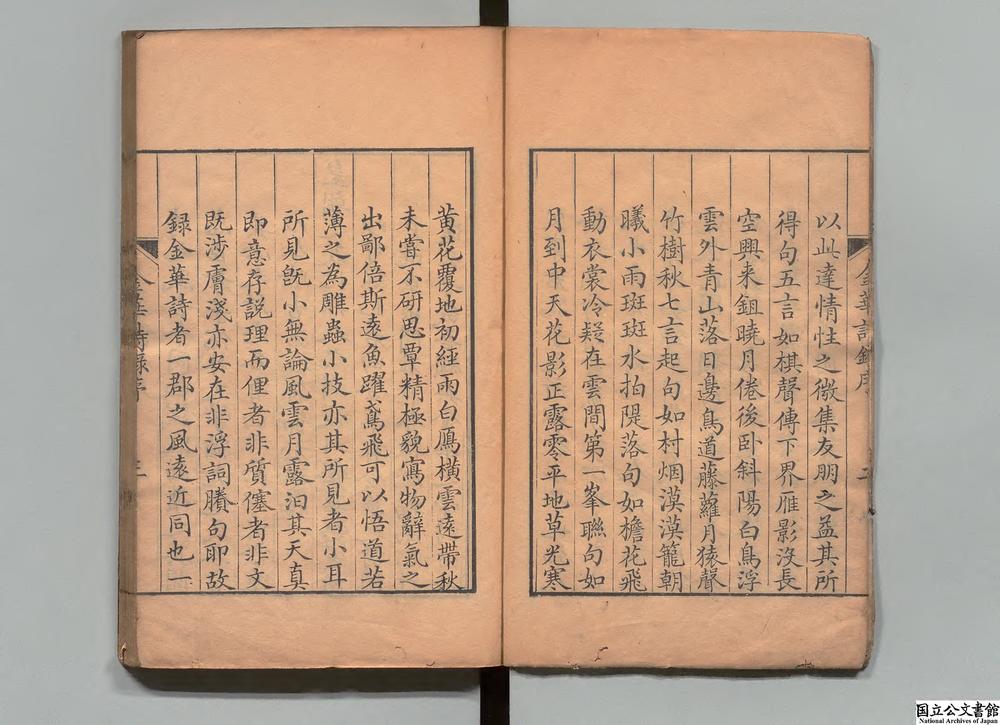 以此達情性之微集友朋之益其所
得句五言如棋聲傳下界雁影沒長
空興来鉏曉月倦後卧斜陽白鳥浮
雲外青山落日邊鳥道藤蘿月猿聲
竹樹秋七言起句如村烟漠漠籠朝
曦小雨斑斑水拍隄落句如檐花飛
動衣裳冷疑在雲間第一峯聯句如
月到中天花影正露零平地草光寒
黄花覆地初經雨白鴈横雲遠帶秋
未嘗不研思覃精極貌寫物辭氣之
出鄙倍斯遠魚躍鳶飛可以悟道若
薄之為雕蟲小技亦其所見者小耳
所見旣小無論風雲月露汩其天真
即意存説理而俚者非質僿者非文
既涉膚淺亦安在非浮詞賸句耶故
録金華詩者一郡之風遠近同也一
金華詩録序
二
金華詩録序
三
国立公文書館
National Archives of Japan